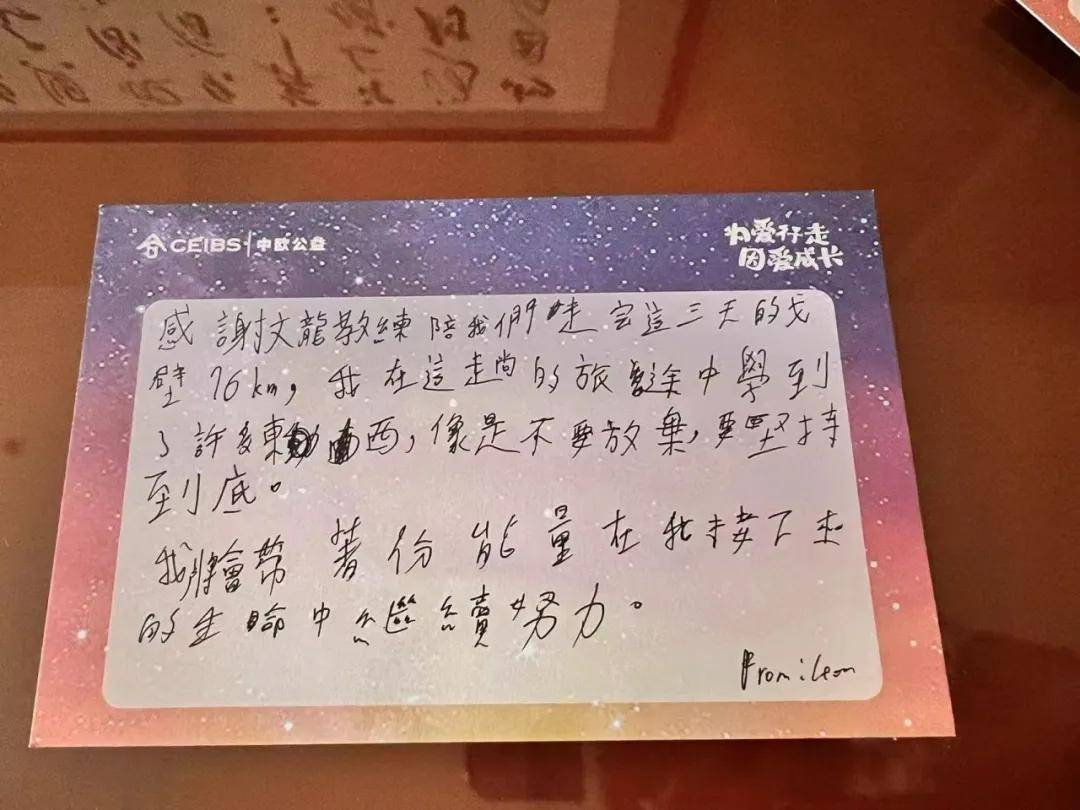 CEIBS 中欧公益
为爱行走
因爱成长
感謝文龍教練陪我們走完這三天的戈
壁76km，我在這趟的旅途中學到
了許多東西，像是不要放棄，要堅持
到底。
我將會帶著份能量在我接下來
的生命中繼續努力。